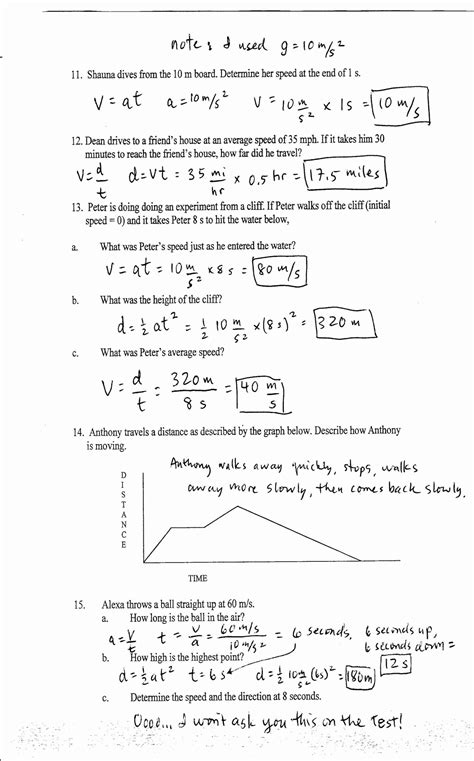 note: I used g = 10 m/s²
11. Shauna dives from the 10 m board. Determine her speed at the end of 1 s.
V = at a = 10 m/s² V = 10 m/s² × 1s = 10 m/s
12. Dean drives to a friend's house at an average speed of 35 mph. If it takes him 30
minutes to reach the friend's house, how far did he travel?
V = d/t d = Vt = 35 mi/hr × 0.5 hr = 17.5 miles
13. Peter is doing doing an experiment from a cliff. If Peter walks off the cliff (initial
speed = 0) and it takes Peter 8 s to hit the water below,
a. What was Peter's speed just as he entered the water?
V = at = 10 m/s² × 8 s = 80 m/s
b. What was the height of the cliff?
d = ½ at² = ½ 10 m/s² × (8 s)² = 320 m
c. What was Peter's average speed?
V = d/t = 320 m/8 s = 40 m/s
14. Anthony travels a distance as described by the graph below. Describe how Anthony
is moving.
Anthony walks away quickly, stops, walks
away more slowly, then comes back slowly.
DISTANCE
TIME
15. Alexa throws a ball straight up at 60 m/s.
a. How long is the ball in the air?
a = V/t t = V/a = 60 m/s/10 m/s² = 6 seconds, 6 seconds up,
6 seconds down =
12 s
b. How high is the highest point?
d = ½ at² t = 6 s d = ½ 10 m/s² (6s)² = 180m
c. Determine the speed and the direction at 8 seconds.
Oooo... I won't ask you this on the test!